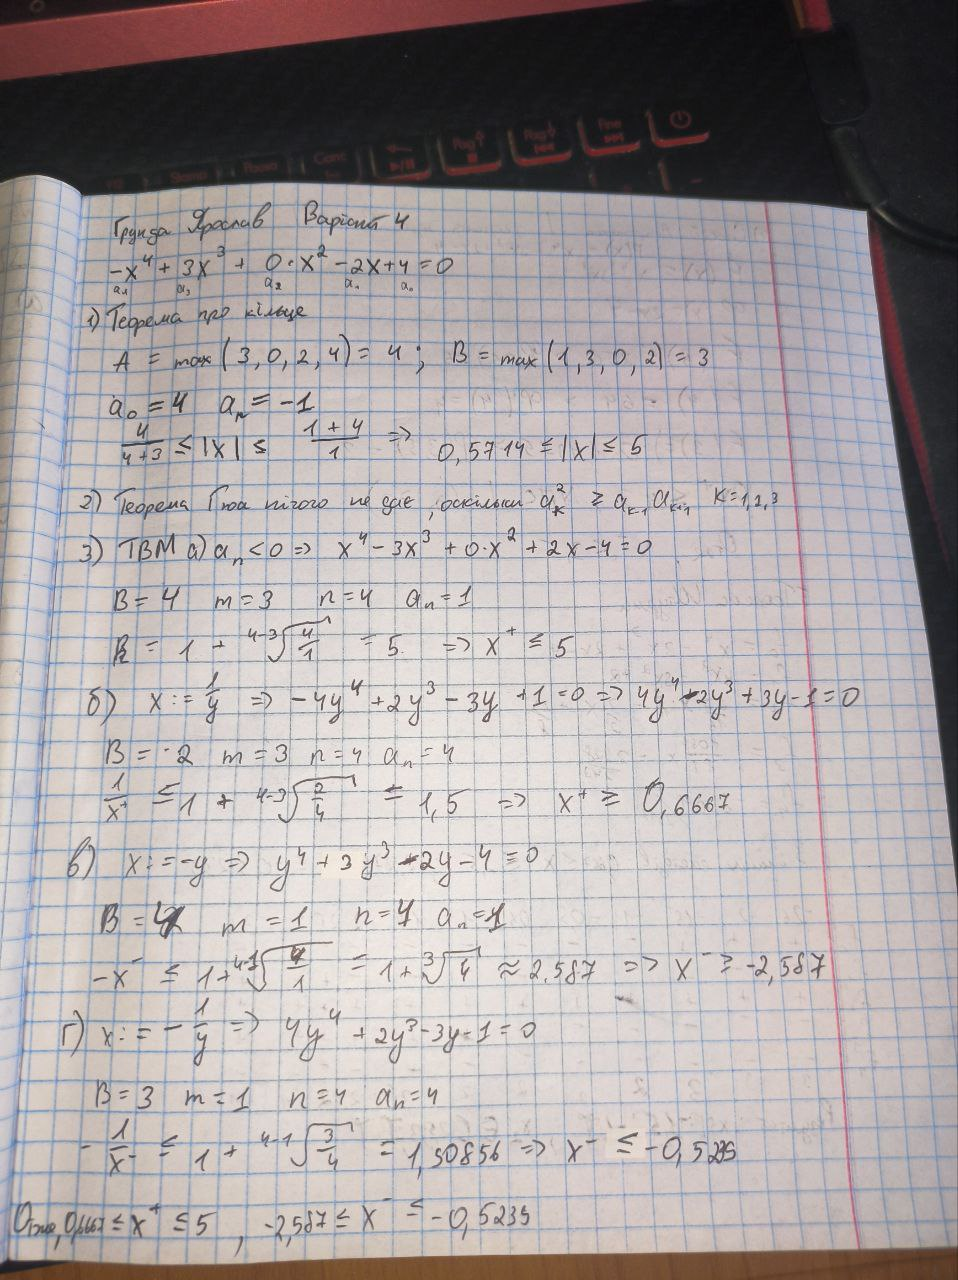 Pause
Грунда Ярослав Варіант 4
-x⁴ + 3x³ + 0·x² - 2x + 4 = 0
a₄ a₃ a₂ a₁ a₀
1) Теорема про кільце
A = max(3, 0, 2, 4) = 4 ; B = max(1, 3, 0, 2) = 3
a₀ = 4 aₙ = -1
4/(4+3) ≤ |x| ≤ (1+4)/1 => 0,5714 ≤ |x| ≤ 5
2) Теорема Гюа нічого не дає, оскільки aₖ² ≥ aₖ₋₁ aₖ₊₁ k=1,2,3
3) ТВМ а) aₙ < 0 => x⁴ - 3x³ + 0·x² + 2x - 4 = 0
B = 4 m = 3 n = 4 aₙ = 1
R = 1 + ⁴⁻³√(4/1) = 5 => x⁺ ≤ 5
б) x := 1/y => -4y⁴ + 2y³ - 3y + 1 = 0 => 4y⁴ - 2y³ + 3y - 1 = 0
B = 2 m = 3 n = 4 aₙ = 4
1/x⁺ ≤ 1 + ⁴⁻³√(2/4) ≤ 1,5 => x⁺ ≥ 0,6667
в) x := -y => y⁴ + 3y³ - 2y - 4 = 0
B = 4 m = 1 n = 4 aₙ = 1
-x⁻ ≤ 1 + ⁴⁻¹√(4/1) = 1 + ³√4 ≈ 2,587 => x⁻ ≥ -2,587
г) x := -1/y => 4y⁴ + 2y³ - 3y - 1 = 0
B = 3 m = 1 n = 4 aₙ = 4
-1/x⁻ ≤ 1 + ⁴⁻¹√(3/4) = 1,90856 => x⁻ ≤ -0,5239
Отже, 0,6667 ≤ x⁺ ≤ 5 , -2,587 ≤ x⁻ ≤ -0,5239